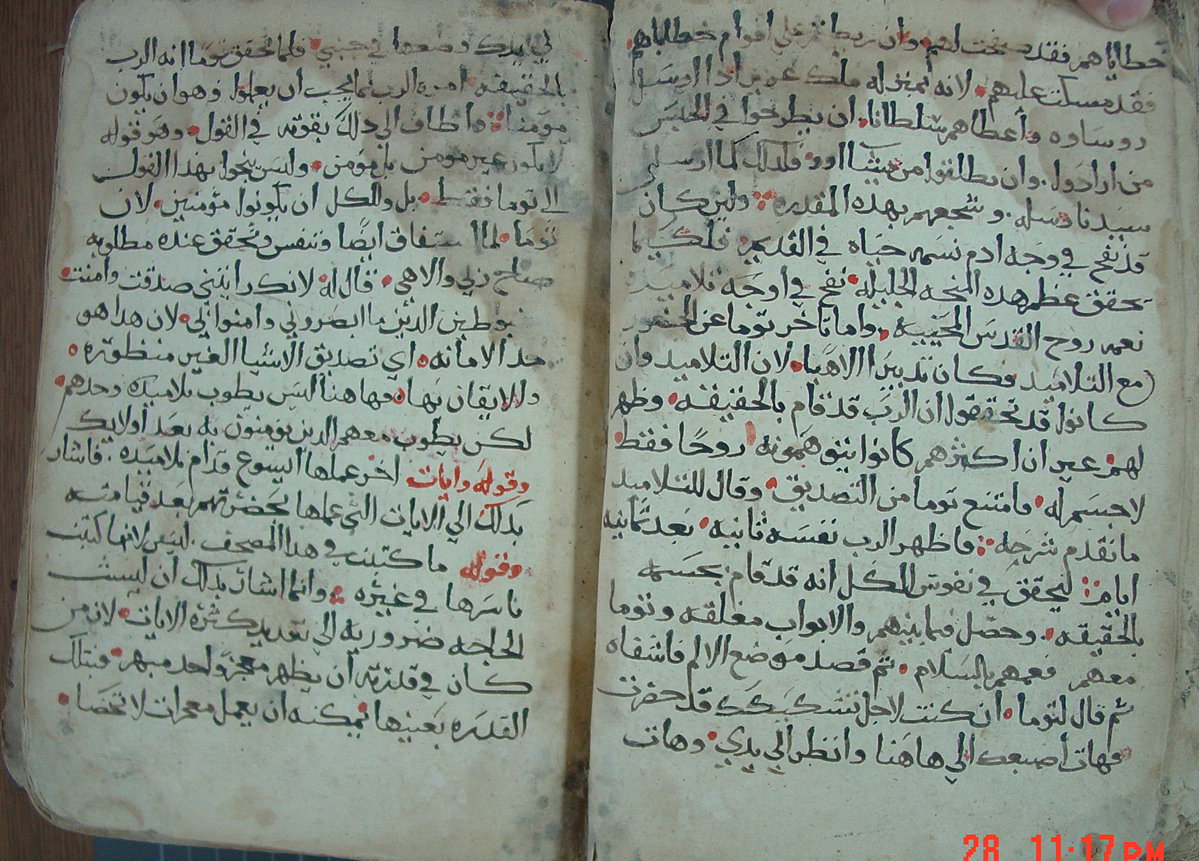 خطاياهم فقد صفحت لهم وان ربطتم علي اقوام خطاياهم
فقد مسكت عليهم لانه بمنزله ملك عزيز اذا ارسل
روساوه واعطاهم سلطانا ان يطرحوا في الحبس
من ارادوا وان يطلقوا من يشااوو فلذلك كما ارسل
سيدنا رسله وشجعهم بهذه المقدره ولين كان
قد نفخ في وجه ادم نسمه حياه في القديم فلكيما
يحقق عظم هذه المنحه الجليله نفخ في اوجه تلاميذه
نعمه روح القدس المحييه واما تاخر توما عن الحضور
مع التلاميذ فكان تدبيرا الاهيا لان التلاميذ وان
كانوا قد تحققوا ان الرب قد قام بالحقيقه وظهر
لهم غير ان اكثرهم كانوا يتوهمونه روحا فقط
لا جسم له فامتنع توما من التصديق وقال للتلاميذ
ما تقدم شرحه فاظهر الرب نفسه ثانيه بعد ثمانيه
ايام ليحقق في نفوس الكل انه قد قام بجسمه
بالحقيقه وحصل فيما بينهم والابواب مغلقه وتوما
معهم فعمهم بالسلام ثم قصد موضع الالم فاشفاه
ثم قال لتوما ان كنت لاجل تشككك قد حضرت
فهات اصبعك الي هاهنا وانظر الي يدي وهات
لي ايدك وضعها في جنبي فلما تحقق توما انه الرب
بالحقيقه امره الرب بما يجب ان يعمله وهو ان يكون
مومنا واضاف الي ذلك بقوته في القول وهو قوله
لا تكون غير مومن بل مومن وليس نحوا بهذا القول
الي توما فقط بل والكل ان يكونوا مؤمنين لان
توما لما استفاق ايضا وتنفس وتحقق عنده مطلوبه
صاح ربي والاهي قال له لانك رايتني صدقت وامنت
فطوبي الذين ما ابصروني وامنوا بي لان هذا هو
حد الامانه اي تصديق الاشيا الغير منظوره
والايقان بها فهاهنا ليس يطوب تلاميذه وحدهم
لكن يطوب معهم الذين يومنون به بعد اولايك
وقوله وايات اخر عملها ايسوع قدام تلاميذه فاشار
بذلك الي الايات التي عملها بحضرتهم بعد قيامته
وقوله ما كتبت في هذا المصحف ليس لانها كتبت
باسرها في غيره وانما اشار بذلك ان ليست
الحاجه ضروريه الي تعديد كثرة الايات لان من
كان في قدرته ان يظهر معجز واحد مبهر فبتلك
القدره بعينها يمكنه ان يعمل معجزات لا تحصا
28 11:17PM